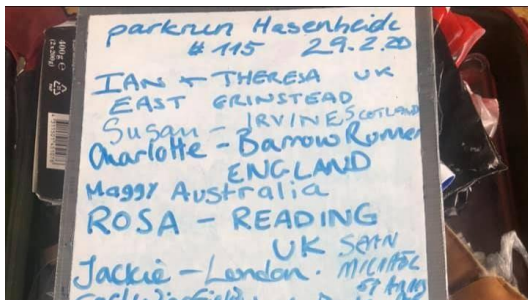 parkrun Hasenheide
# 115 29.2.20
IAN + THERESA UK
EAST GRINSTEAD
Susan - IRVINE SCOTLAND
Charlotte - Barrow Runner
ENGLAND
Maggy Australia
ROSA - READING
UK SEAN
Jackie - London. MICHAEL
400g e
(2x200g)